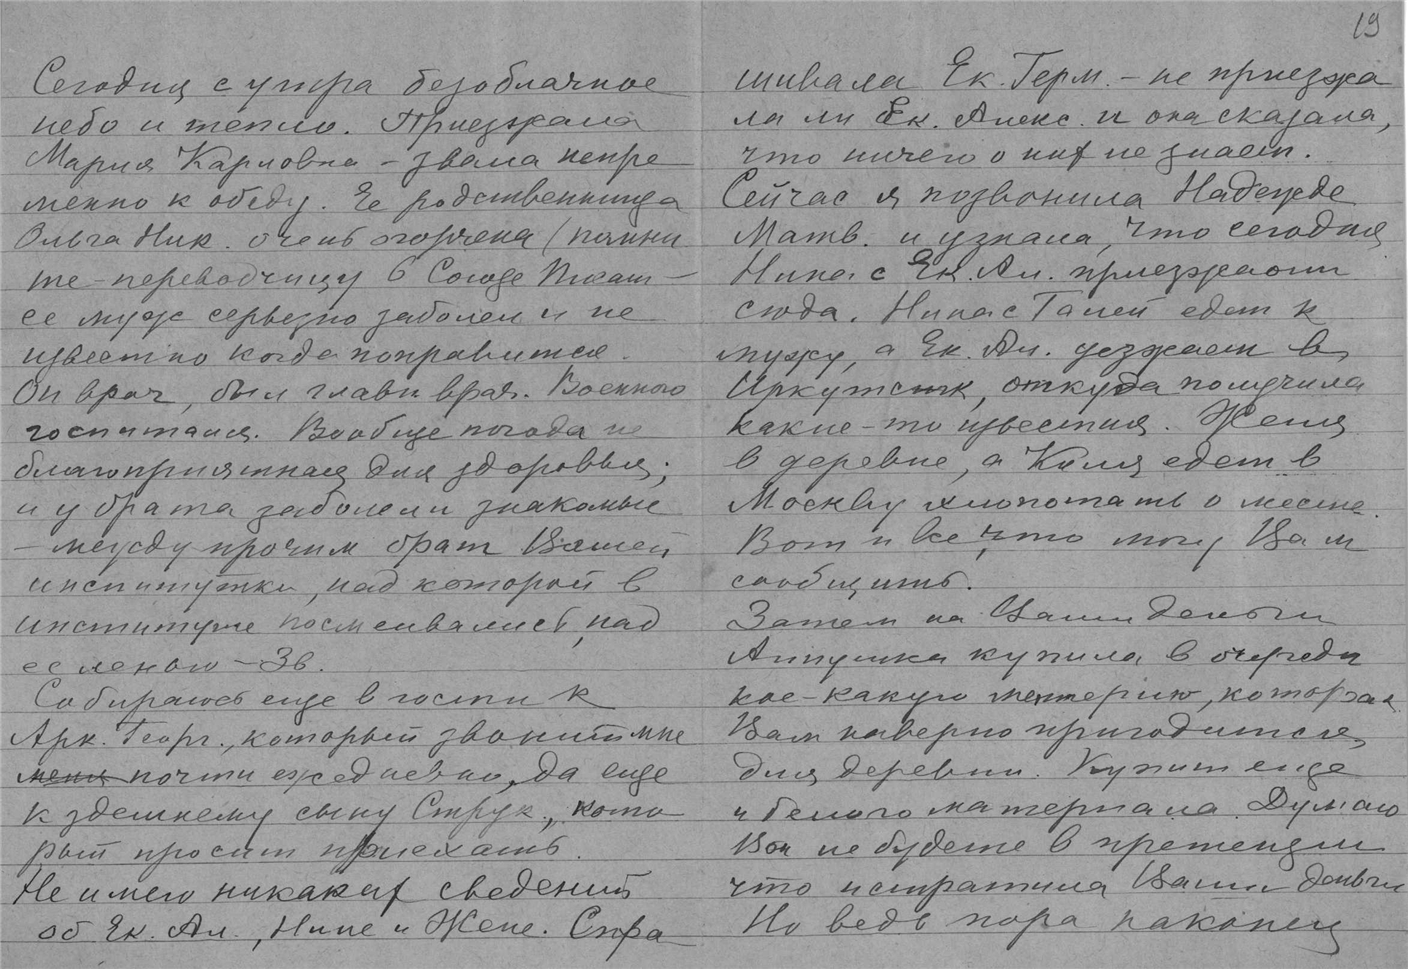 19
Сегодня с утра безоблачное
небо и тепло. Приезжала
Мария Карловна – звала непре
менно к обеду. Ее родственница
Ольга Ник. очень огорчена (помни
те – переводчицу в Союзе Писат –
ее муж серьезно заболел и не
известно когда поправится.
Он врач, был главн врач. Военного
госпиталя. Вообще погода не
благоприятная для здоровья;
и у брата заболели знакомые
– между прочим брат Вашей
институтки, над которой в
институте посмеивались, над
ее ленью – Зв.
Собираюсь еще в гости к
Арк. Георг., который звонит мне
почти ежедневно, да еще
к здешнему сыну Струк., кото
рый просит приехать.
Не имею никаких сведений
об Ек. Ал., Нине и Жене. Спра
шивала Ек. Герм. – не приезжа
ла ли Ек. Алекс. и она сказала,
что ничего о них не знает.
Сейчас я позвонила Надежде
Матв. и узнала, что сегодня
Нина с Ек. Ал. приезжают
сюда. Нина с Галей едет к
мужу, а Ек. Ал. уезжает в
Иркутск, откуда получила
какие-то известия. Женя
в деревне, а Киля едет в
Москву хлопотать о месте.
Вот и все, что могу Вам
сообщить.
Затем на Ваши деньги
Аннушка купила в очереди
кое-какую материю, которая
Вам наверно пригодится,
для деревни. Купит еще
и белого материала. Думаю
Вы не будете в претензии
что истратила Ваши деньги
Но ведь пора наконец